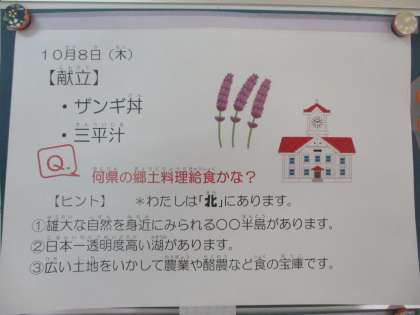 10月8日（木）
【献立】
・ザンギ丼
・三平汁
Q. 何県の郷土料理給食かな？
【ヒント】　＊わたしは「北」にあります。
①雄大な自然を身近にみられる〇〇半島があります。
②日本一透明度高い湖があります。
③広い土地をいかして農業や酪農など食の宝庫です。